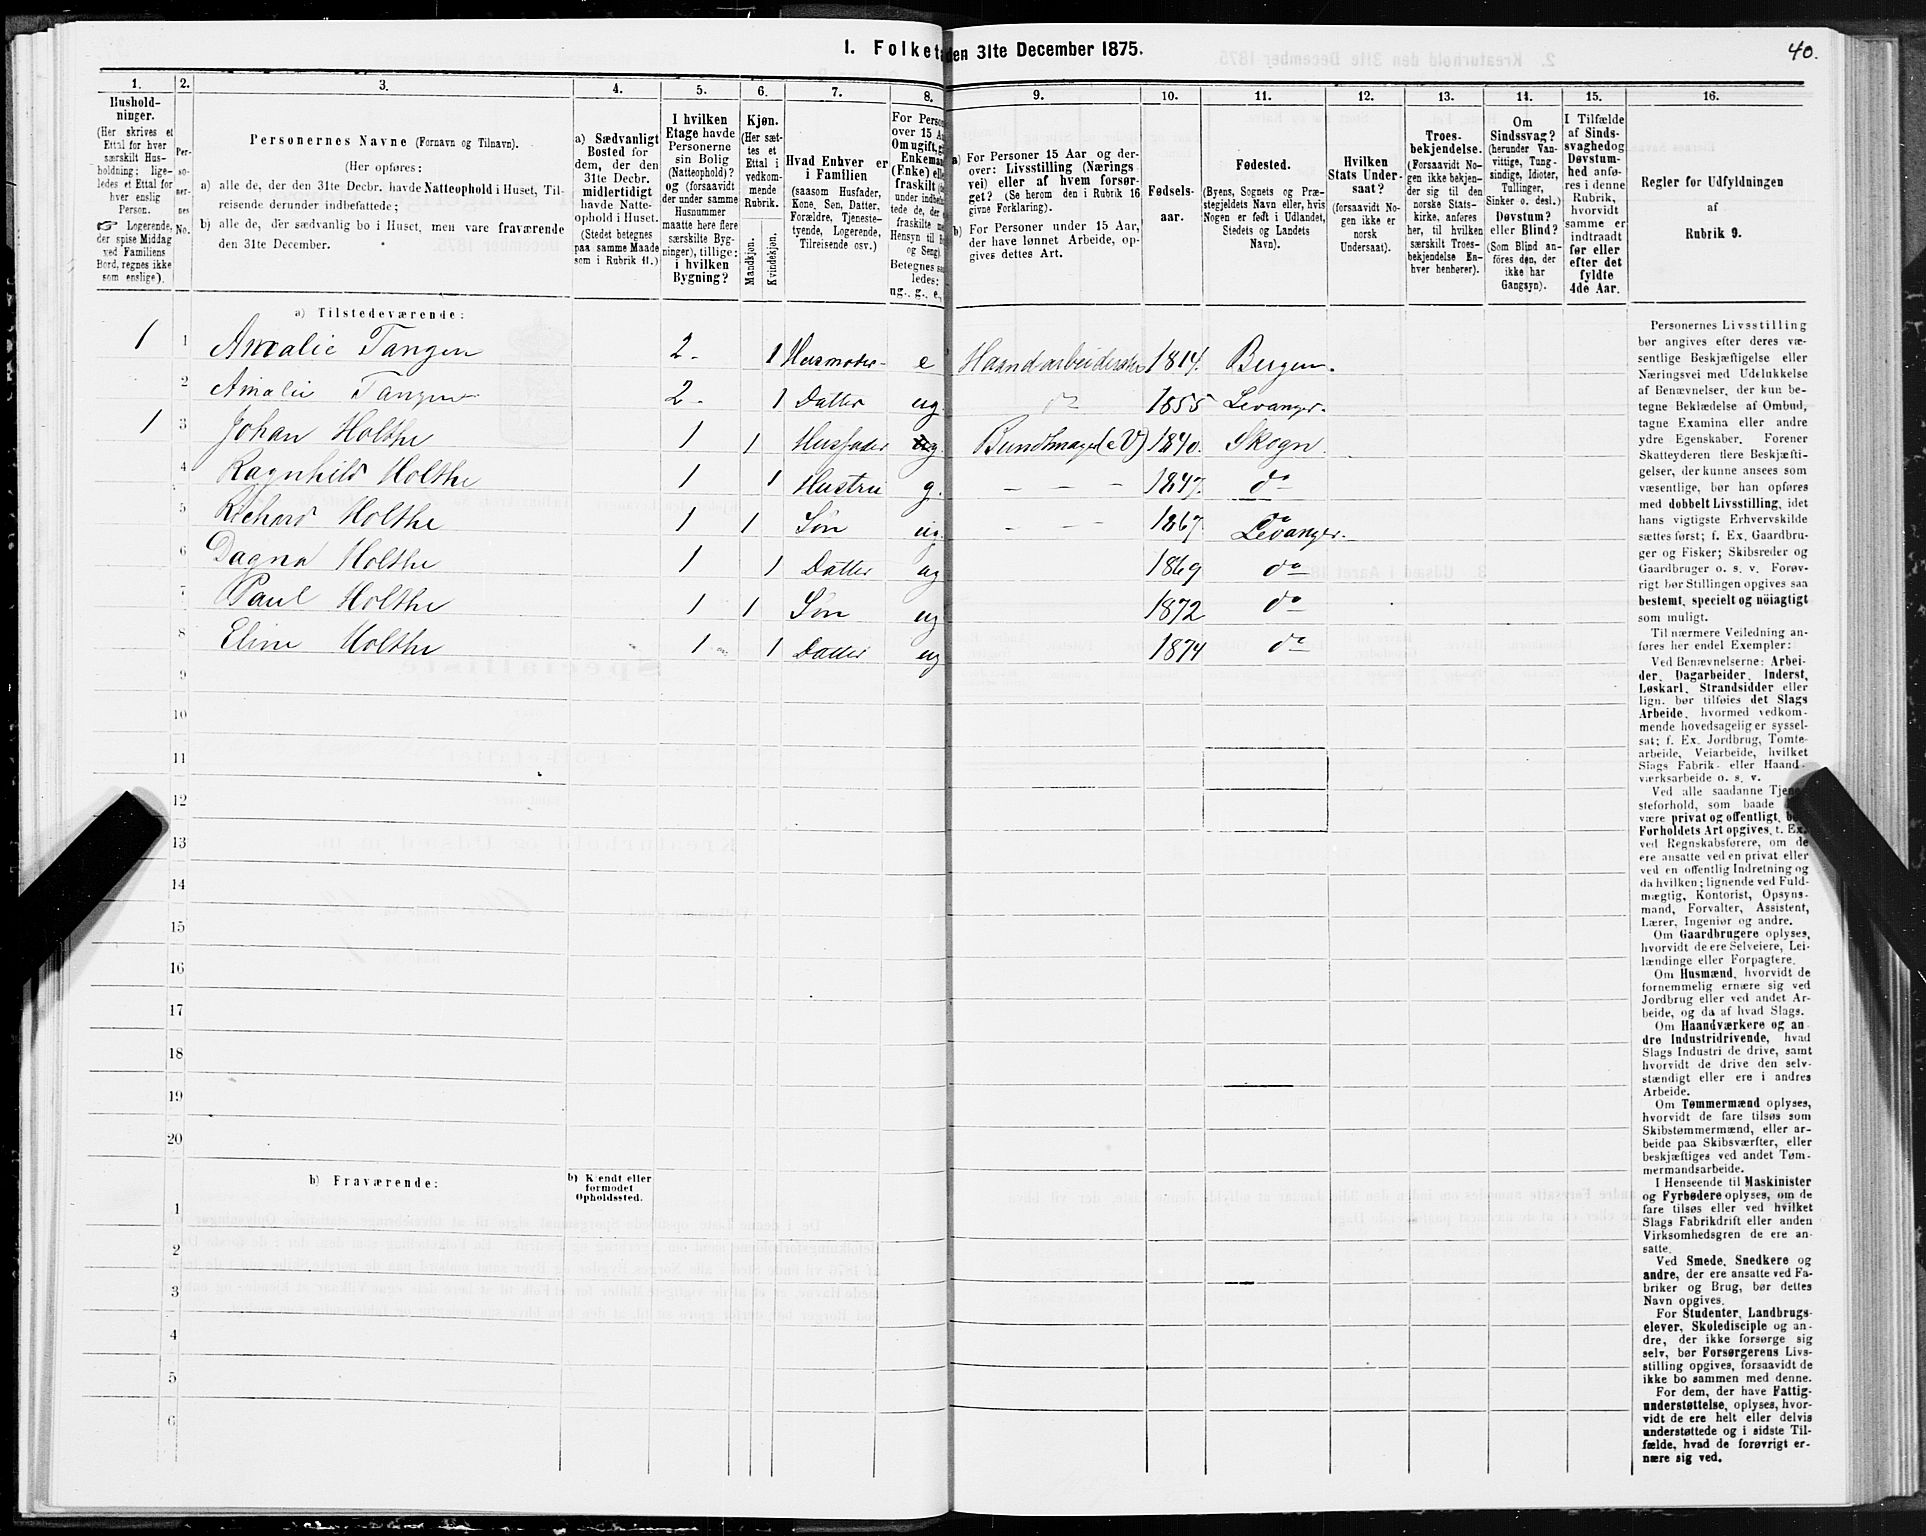 40.
I. Folket
den 31te December 1875.
1. 2. 3. 4. 5. 6. 7. 8. 9. 10. 11. 12. 13. 14. 15. 16.
Hushold-
ninger.
(Her skrives et
Ettal for hver
særskilt Hus-
holdning; lige-
ledes et Ettal for
hver enslig
Person.
☞ Logerende,
der spise Middag
ved Familiens
Bord, regnes ikke
som enslige).
Per-
so-
ner-
nes
No.
Personernes Navne (Fornavn og Tilnavn).
(Her opføres:
a) alle de, der den 31te Decbr. havde Natteophold i Huset, Til-
reisende derunder indbefattede;
b) alle de, der sædvanlig bo i Huset, men vare fraværende
den 31te December.
a) Sædvanligt
Bosted for
dem, der den
31te Decbr.
midlertidigt
havde Natte-
ophold i Huset.
(Stedet betegnes
paa samme Maade
som i Rubrik 11.)
I hvilken
Etage havde
Personerne
sin Bolig
(Natteophold)?
og (forsaavidt
der under samme
Husnummer
maatte høre flere
særskilte Byg-
ninger), tillige:
i hvilken
Bygning?
Kjøn.
(Her sæt-
tes et
Ettal i
vedkom-
mende
Rubrik.
Mandkjøn.
Kvindekjøn.
Hvad Enhver er
i Familien
(saasom Husfader,
Kone, Søn, Datter,
Forældre, Tjeneste-
tyende, Logerende,
Tilreisende osv.)
For Person
over 15 A
Om ugift, g
Enkeman
(Enke) elle
fraskilt (
under indbef
tede de, der
fraskilte m
Hensyn til
og Seng)
Betegnes s
ledes:
ug., g., e.,
a) For Personer 15 Aar og der-
over: Livsstilling (Nærings
vei) eller af hvem forsør-
get? (Se herom den i Rubrik 16
givne Forklaring).
b) For Personer under 15 Aar,
der have lønnet Arbeide, op-
gives dettes Art.
Fødsels-
aar.
Fødested.
(Byens, Sognets og Præ-
stegjeldets Navn eller, hvis
Nogen er født i Udlandet,
Stedets og Landets
Navn).
Hvilken
Stats Under-
saat?
(forsaavidt No-
gen ikke er
norsk
Undersaat).
Troes-
bekjendelse.
(Forsaavidt No-
gen ikke bekjen-
der sig til den
norske Stats-
kirke, anføres
her, til hvilken
særskilt Troes-
bekjendelse En-
hver henhører).
Om
Sindssvag?
(herunder Van-
vittige, Tung-
sindige, Idioter,
Tullinger,
Sinker o. desl.)
Døvstum?
eller Blind?
(Som Blind an-
føres den, der
ikke har
Gangsyn).
I Tilfælde
af Sinds-
svaghed og
Døvstum-
hed anfø-
res i denne
Rubrik,
hvorvidt
samme er
indtraadt
før eller
efter det
fyldte
4de Aar.
Regler for Udfyldningen
af
Rubrik 9.
a) Tilstedeværende:
1 1 Amalie Tangen 2 - 1 Husmoder - e Haandarbeiderske 1814. Bergen.
2 Amalie Tangen 2 - 1 Datter ug. do 1855 Levanger.
1 3 Johan Holthe 1 1 Husfader g. Bundtmager (eV) 1840. Skogn.
4 Ragnhild Holthe 1 1 Hustru g. - - - 1847. do
5 Richard Holthe 1 1 Søn ug. - - - 1867. Levanger.
6 Dagna Holthe 1 1 Datter ug 1869 do
7 Paul Holthe 1 1 Søn ug 1872 do
8 Eline Holthe 1 1 Datter ug 1874 do
9
10
11
12
13
14
15
16
17
18
19
20
b) Fraværende:
b) Kjendt eller
formodet
Opholdssted.
1
2
3
4
5
6
Personernes Livsstilling
bør angives efter deres væ-
sentlige Beskjæftigelse eller
Næringsvei med Udelukkelse
af Benævnelser, der kun be-
tegne Beklædelse af Ombud,
tagne Examina eller andre
ydre Egenskaber. Forener
Skatteyderen flere Beskjæfti-
gelser, der kunne ansees som
væsentlige, bør han opføres
med dobbelt Livsstilling, idet
hans vigtigste Erhvervskilde
sættes først; f. Ex. Gaardbru-
ger og Fisker; Skibsreder og
Gaardbruger o. s. v. Forøv-
rigt bør Stillingen opgives saa
bestemt, specielt og nöiagtigt
som muligt.
Til nærmere Veiledning an-
føres her endel Exempler:
Ved Benævnelserne: Arbei-
der, Dagarbeider, Inderst,
Løskarl, Strandsidder eller
lign. bør tilføies det Slags
Arbeide, hvormed vedkom-
mende hovedsagelig er syssel-
sat; f. Ex. Jordbrug, Tomte-
arbeide, Veiarbeide, hvilket
Slags Fabrik- eller Haand-
værksarbeide o. s. v.
Ved alle saadanne Tjene-
steforhold, som baade
være privat og offentligt, bør
Forholdets Art opgives, t. Ex.
ved Regnskabsførere, om de
ere ansatte ved en privat eller
ved en offentlig Indretning og
da hvilken; lignende ved Fuld-
mægtig, Kontorist, Opsyns-
mand, Forvalter, Assistent,
Lærer, Ingeniør og andre.
Om Gaardbrugere oplyses,
hvorvidt de ere Selveiere, Lei-
lændinge eller Forpagtere.
Om Husmænd, hvorvidt de
fornemmelig ernære sig ved
Jordbrug eller ved andet Ar-
beide, og da af hvad Slags.
Om Haandværkere og an
dre Industridrivende, hvad
Slags Industri de drive, samt
hvorvidt de drive den selv-
stændigt eller ere i andres
Arbeide.
Om Tømmermænd oplyses,
hvorvidt de fare tilsøs som
Skibstømmermænd, eller ar-
beide paa Skibsværfter, eller
beskjæftiges ved andet Tøm-
mermandsarbeide.
I Henseende til Maskinister
og Fyrbødere oplyses, om de
fare tilsøs eller ved hvilket
Slags Fabrikdrift eller anden
Virksomhedsgren de ere an-
satte.
Ved Smede, Snedkere og
andre, der ere ansatte ved Fa-
briker og Brug, bør dettes
Navn opgives.
For Studenter, Landbrugs-
elever, Skoledisciple og an-
dre, der ikke forsørge sig
selv, bør Forsørgerens Livs-
stilling opgives, forsaavidt de
ikke bo sammen med denne.
For dem, der have Fattig-
understøttelse, oplyses, hvor-
vidt de ere helt eller delvis
understøttede og i sidste Til-
fælde, hvad de forøvrigt er-
nære sig ved.